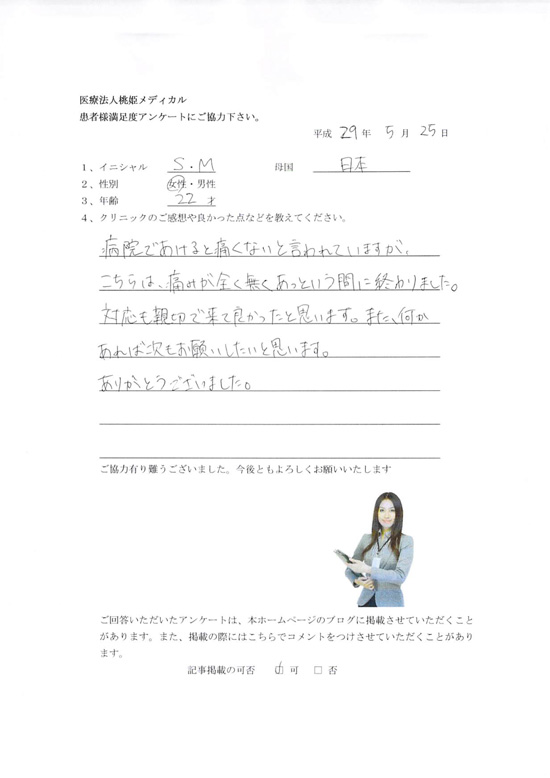 医療法人桃姫メディカル
患者様満足度アンケートにご協力下さい。
平成 29年 5月 25日
1、イニシャル S・M 母国 日本
2、性別 女性・男性
3、年齢 22才
4、クリニックのご感想や良かった点などを教えてください。
病院であけると痛くないと言われていますが、
こちらは、痛みが全く無くあっという間に終わりました。
対応も親切で来て良かったと思います。また、何か
あれば次もお願いしたいと思います。
ありがとうございました。
ご協力有り難うございました。今後ともよろしくお願いいたします
ご回答いただいたアンケートは、本ホームページのブログに掲載させていただくこと
があります。また、掲載の際にはこちらでコメントをつけさせていただくことがあり
ます。
記事掲載の可否 ☑ 可 □ 否